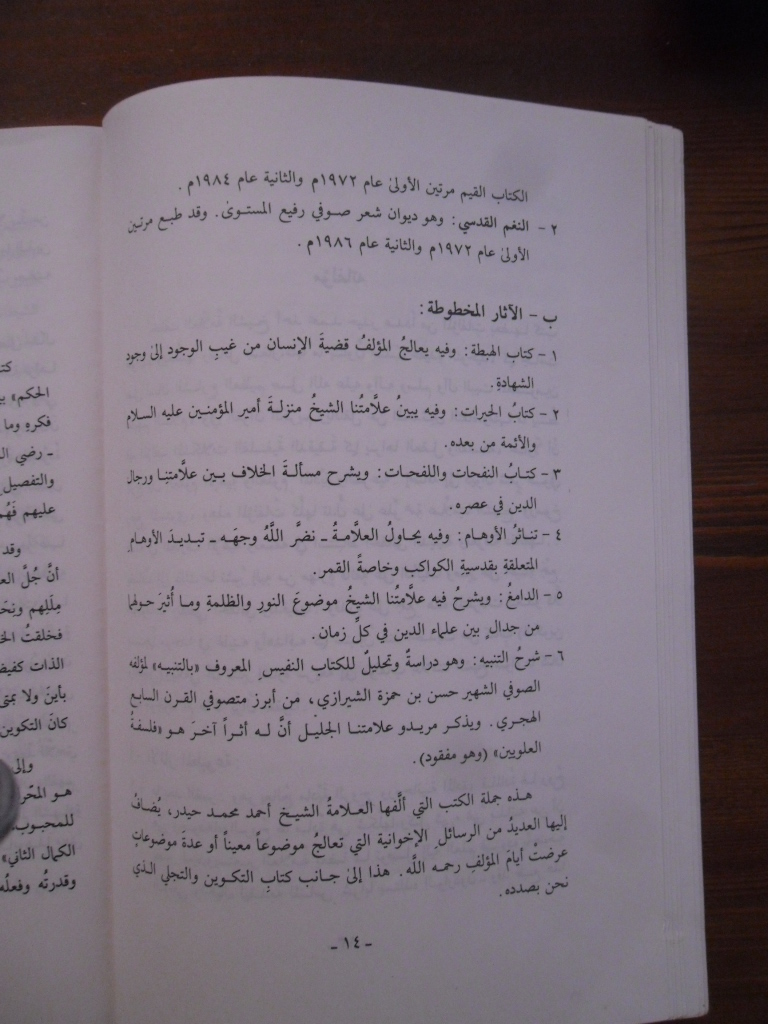 الكتاب القيم مرتين الأولىٰ عام ١٩٧٢م والثانية عام ١٩٨٤م.
٢ - النغم القدسي: وهو ديوان شعر صوفي رفيع المستوىٰ. وقد طبع مرتين
الأولىٰ عام ١٩٧٢م والثانية عام ١٩٨٦م.
ب - الآثار المخطوطة:
١ - كتاب الهبطة: وفيه يعالجُ المؤلفُ قضيةَ الإنسان من غيبِ الوجود إلىٰ وجود
الشهادةِ.
٢ - كتابُ الحيرات: وفيه يبينُ علاّمتُنا الشيخُ منزلةَ أمير المؤمنين عليه السلام
والأئمة من بعده.
٣ - كتابُ النفحات واللفحات: ويشرح مسألةَ الخلاف بين علاّمتنا ورجال
الدين في عصره.
٤ - تناثرُ الأوهام: وفيه يحاولُ العلامةُ - نضَّر اللَّهُ وجهَه - تبديدَ الأوهام
المتعلقةِ بقدسيةِ الكواكب وخاصةً القمر.
٥ - الدامغُ: ويشرحُ فيه علاّمتُنا الشيخُ موضوعَ النورِ والظلمةِ وما أُثيرَ حولهما
من جدالٍ بين علماء الدين في كلِّ زمان.
٦ - شرحُ التنبيه: وهو دراسةٌ وتحليلٌ للكتاب النفيسِ المعروف «بالتنبيه» لمؤلفه
الصوفي الشهير حسن بن حمزة الشيرازي، من أبرز متصوفي القرن السابع
الهجري. ويذكر مريدو علامتنا الجليل أنَّ له أثراً آخرَ هو «فلسفةُ
العلويين» (وهو مفقود).
هذه جملة الكتب التي ألَّفها العلامةُ الشيخ أحمد محمد حيدر، يُضافُ
إليها العديدُ من الرسائلِ الإخوانية التي تعالجُ موضوعاً معيناً أو عدةَ موضوعاتٍ
عرضتْ أيامَ المؤلفِ رحمه اللَّه. هذا إلىٰ جانب كتابِ التكوين والتجلي الذي
نحن بصدده.
- ١٤ -
الحكم»
فكره وما
- رضي
والتفصيل
عليهم
وقد
أنَّ جُلَّ
الذات
كانَ التكوين
وإلى
للمحبوب
الكمال الثاني»
وقدرتُه وفعلُه